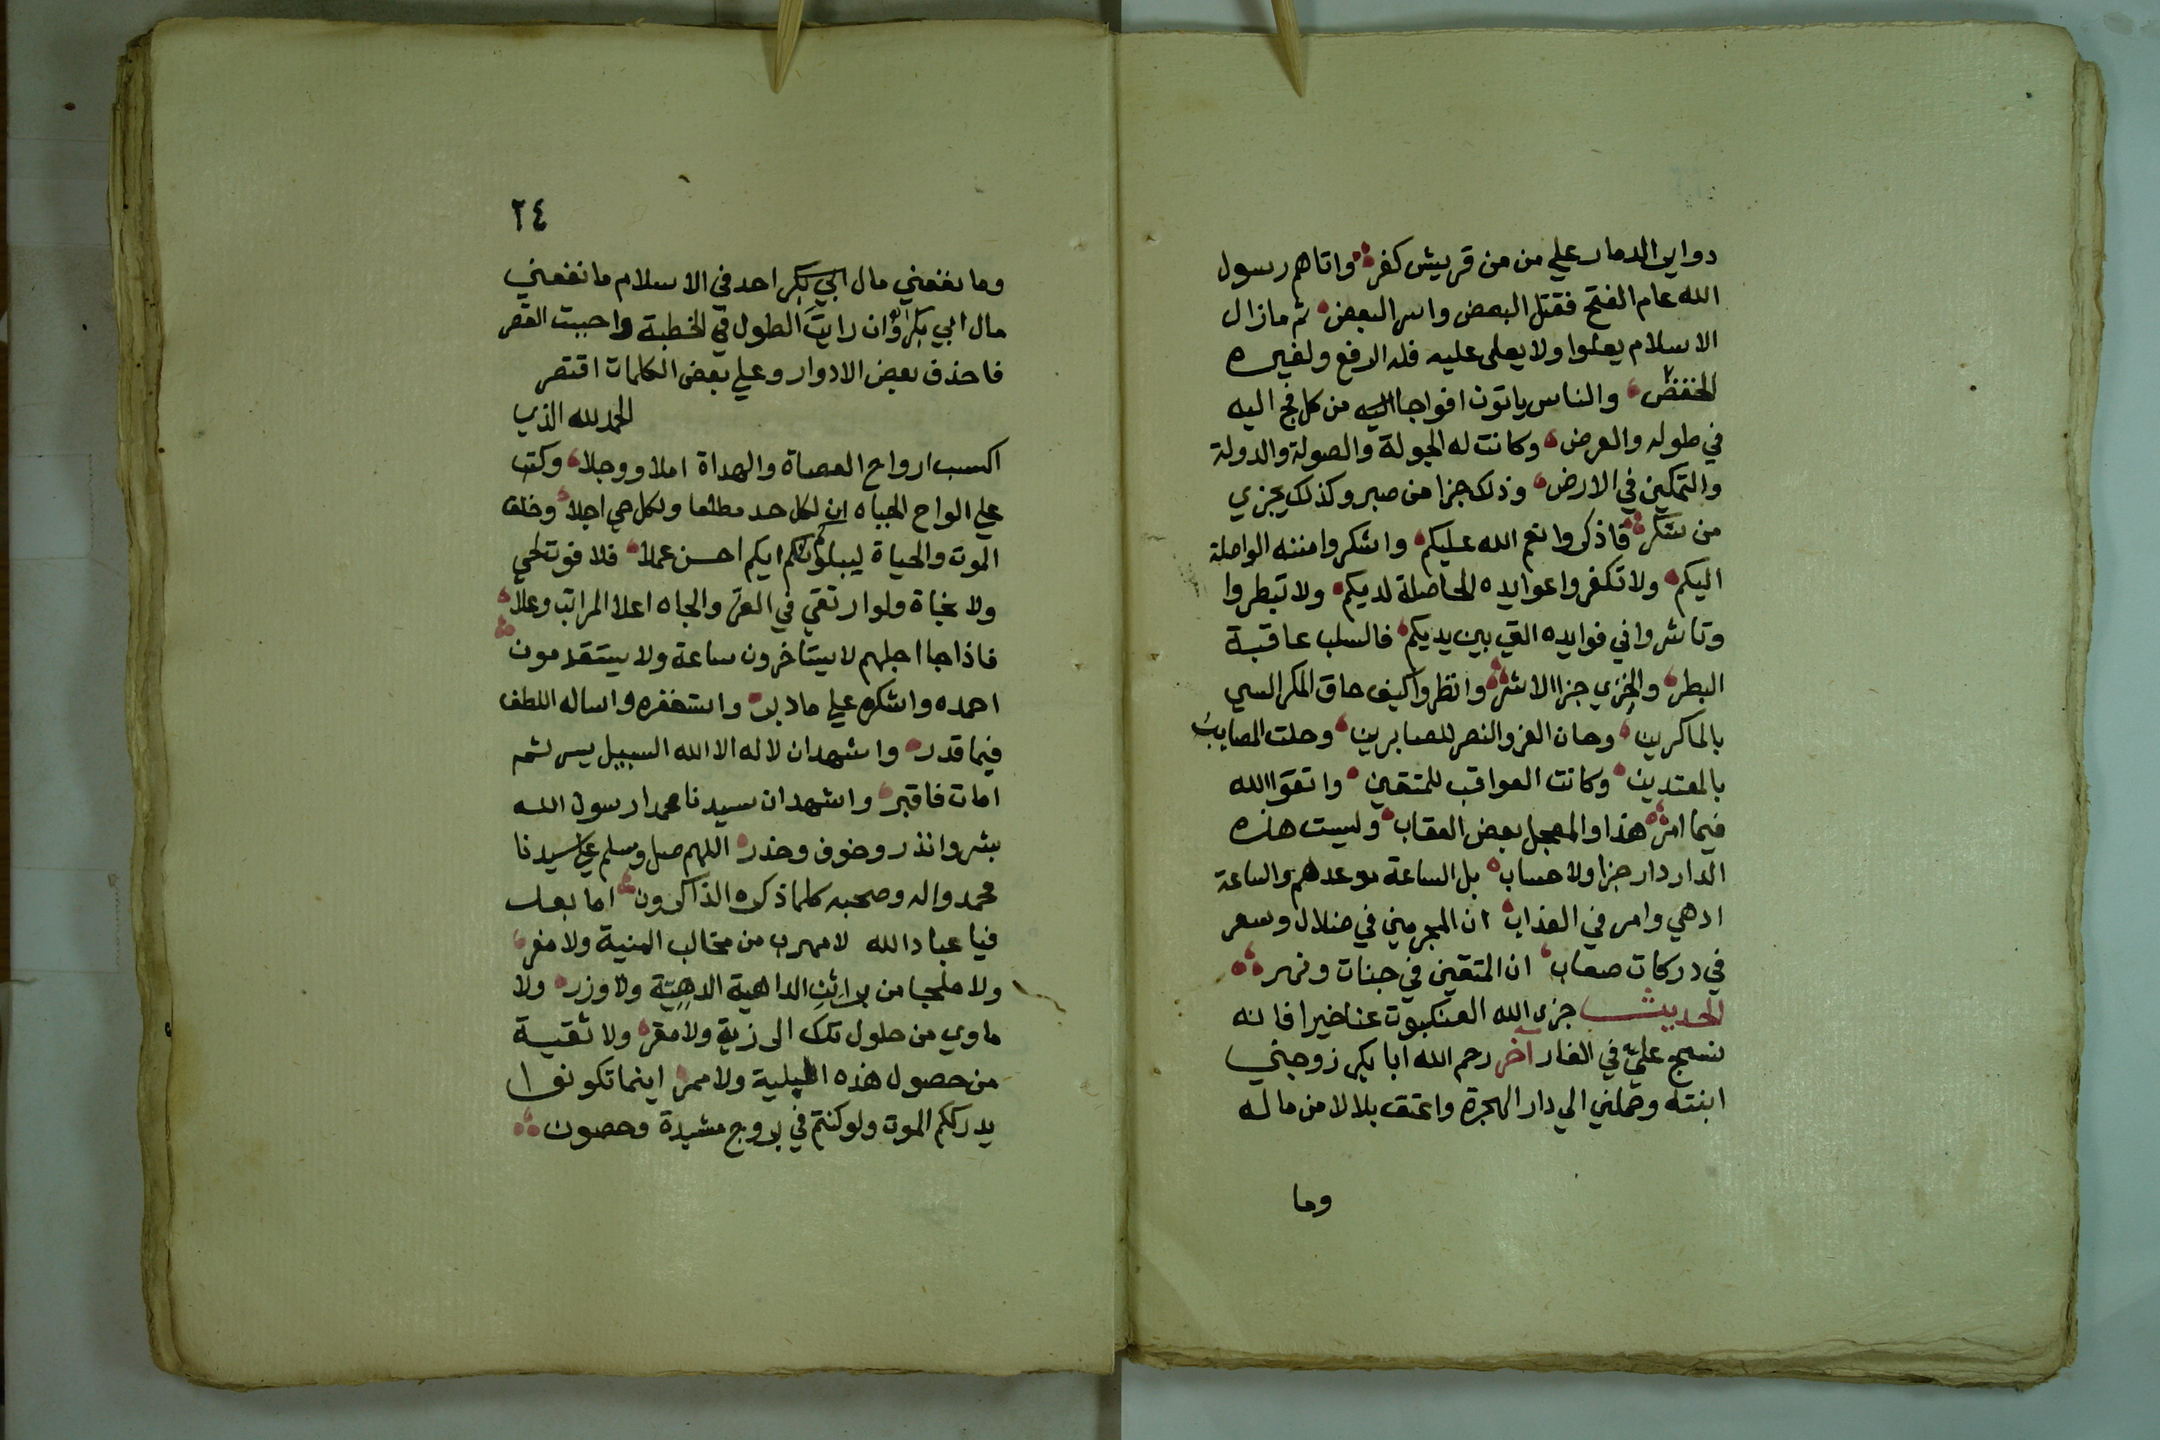 دواير الدمار علي من من قريش كفر واتاهم رسول
الله عام الفتح فقتل البعض واسر البعض ثم مازال
الاسلام يعلوا ولا يعلى عليه فله الرفع ولغيره
الخفض والناس ياتون افواجا اليه من كل فج اليه
في طوله والعرض وكانت له الجولة والصولة والدولة
والتمكين في الارض وذلك جزا من صبر وكذلك يجزي
من شكر فاذكروا نعم الله عليكم واشكروا مننه الواصلة
اليكم ولا تكفروا عوايده الحاصلة لديكم ولا تبطروا
وتاشروا في فوايده التي بين يديكم فالسلب عاقبة
البطر والخزي جزا الاشر وانظروا كيف حاق المكر السي
بالماكرين وحان العز والنصر للصابرين وحلت المصايب
بالمعتدين وكانت العواقب للمتقين واتقوا الله
فيما امر هذا والمعجل بعض العقاب وليست هذه
الدار دار جزا ولا حساب بل الساعة موعدهم والساعة
ادهي وامر في العذاب ان المجرمين في ضلال وسعر
في دركات صعاب ان المتقين في جنات ونهر
الحديث جزي الله العنكبوت عنا خيرا فانه
نسج علي في الغار آخر رحم الله ابا بكر زوجني
ابنته وحملني الي دار الهجرة واعتق بلالا من ماله
وما
٢٤
وما نفعني مال ابي بكر احد في الاسلام ما نفعني
مال ابي بكر وان رايت الطول في الخطبة واحببت القصر
فاحذف بعض الادوار وعلي بعض الكلمات اقتصر
الحمد لله الذي
اكسب ارواح العصاة والهداة املا ووجلا وكتب
علي الواح الجباه ان لكل حد مطلعا ولكل حي اجلا وخلق
الموت والحياة ليبلوكم ايكم احسن عملا فلا فوت لحي
ولا نجاة ولو ارتقي في العز والجاه اعلا المراتب وعلا
فاذا جا اجلهم لا يستاخرون ساعة ولا يستقدمون
احمده واشكره علي ما دبر واستغفره واساله اللطف
فيما قدر واشهد ان لا اله الا الله السبيل يسر ثم
امات فاقبر واشهد ان سيدنا محمدا رسول الله
بشر وانذر وخوف وحذر اللهم صل وسلم علي سيدنا
محمد واله وصحبه كلما ذكره الذاكرون اما بعد
فيا عباد الله لا مهرب من مخالب المنية ولا مفر
ولا ملجا من براثن الداهية الدهية ولا وزر ولا
ماوي من حلول تلك الرزية ولا مقر ولا تقية
من حصول هذه البلية ولا ممر اينما تكونوا
يدرككم الموت ولو كنتم في بروج مشيدة وحصون